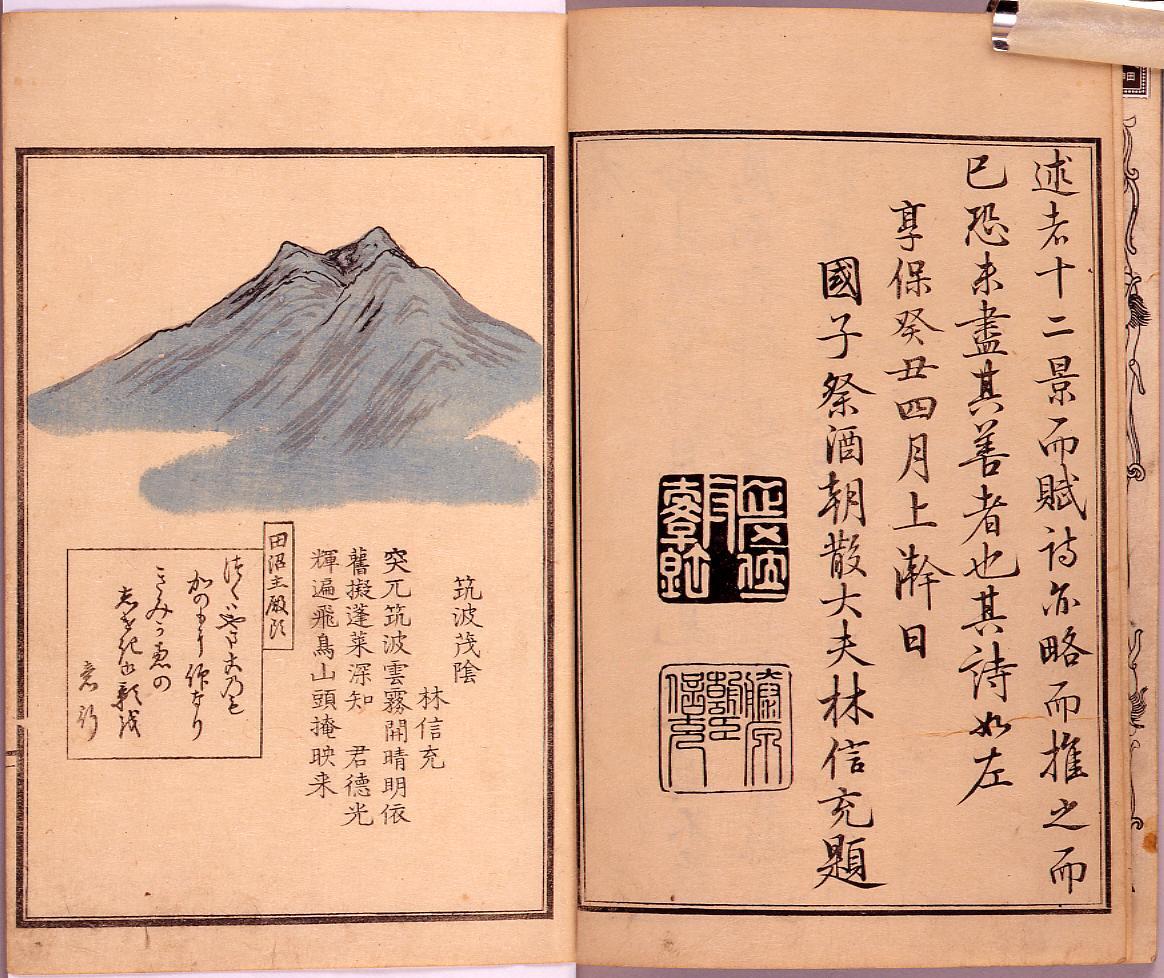 述者十二景而賦詩亦略而推之而
已恐未盡其善者也其詩如左
享保癸丑四月上澣日
國子祭酒朝散大夫林信充題
筑波茂陰
林信充
突兀筑波雲霧開晴明依
舊擬蓬莱深知 君德光
輝遍飛鳥山頭掩映来
田沼主殿頭
意行